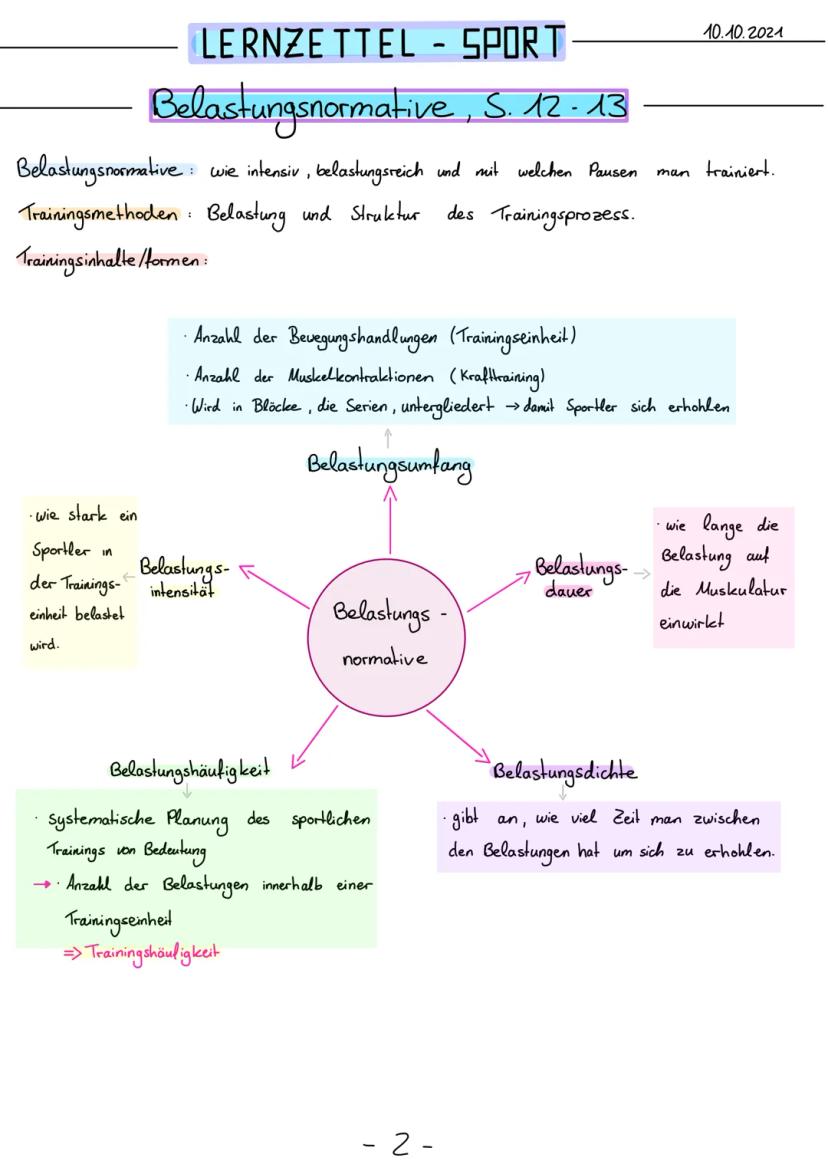 LERNZETTEL - SPORT
10.10.2021
Belastungsnormative, S. 12-13
Belastungsnormative: wie intensiv, belastungsreich und mit welchen Pausen man trainiert.
Trainingsmethoden: Belastung und Struktur des Trainingsprozess.
Trainingsinhalte/formen:
· Anzahl der Bewegungshandlungen (Trainingseinheit)
· Anzahl der Muskelkontraktionen (Krafttraining)
· Wird in Blöcke, die Serien, untergliedert → damit Sportler sich erhohlen
↑
Belastungsumfang
· wie stark ein
Sportler in
der Trainings-
einheit belastet
wird.
←
Belastungs-
intensität
Belastungs-
normative
Belastungs-
dauer
→
· wie lange die
Belastung auf
die Muskulatur
einwirkt
Belastungshäufigkeit
↓
· systematische Planung des sportlichen
Trainings von Bedeutung
→ · Anzahl der Belastungen innerhalb einer
Trainingseinheit
=> Trainingshäufigkeit
Belastungsdichte
↓
· gibt an, wie viel Zeit man zwischen
den Belastungen hat um sich zu erhohlen.
- 2 -